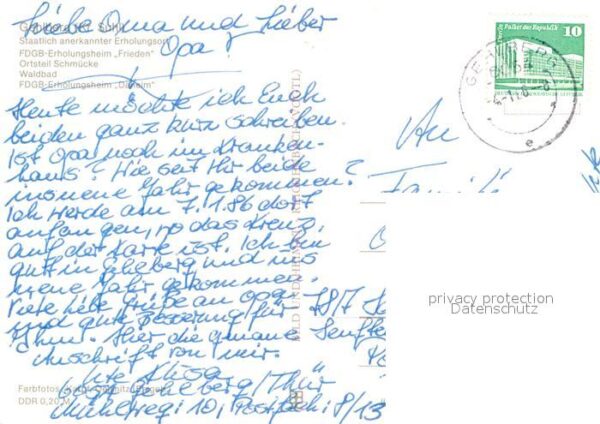 Liebe Oma und Lieber
Opa!
Gehlberg Kr. Suhl
Staatlich anerkannter Erholungsort
FDGB-Erholungsheim „Frieden"
Ortsteil Schmücke
Waldbad
FDGB-Erholungsheim „Daheim"
Heute möchte ich Euch
beiden ganz kurz schreiben.
Ist Opa noch im Kranken-
haus? Wie seit Ihr beide
ins neue Jahr gekommen?
Ich werde am 7.1.86 dort
anfangen, wo das Kreuz
auf der Karte ist. Ich bin
gut in Gehlberg und ins
neue Jahr gekommen.
Viele liebe Grüße an Opa
und gute Besserung für
Ihm. Hier die genaue
Anschrift von mir.
Ute
Gehlberg/Thür
Mühlweg 10, Postfach 8/13
Farbfotos:
DDR 0,20 M
BILD UND HEIMAT
Palast der Republik
10
DDR
GEHLBERG
e
An
Familie
privacy protection
Datenschutz